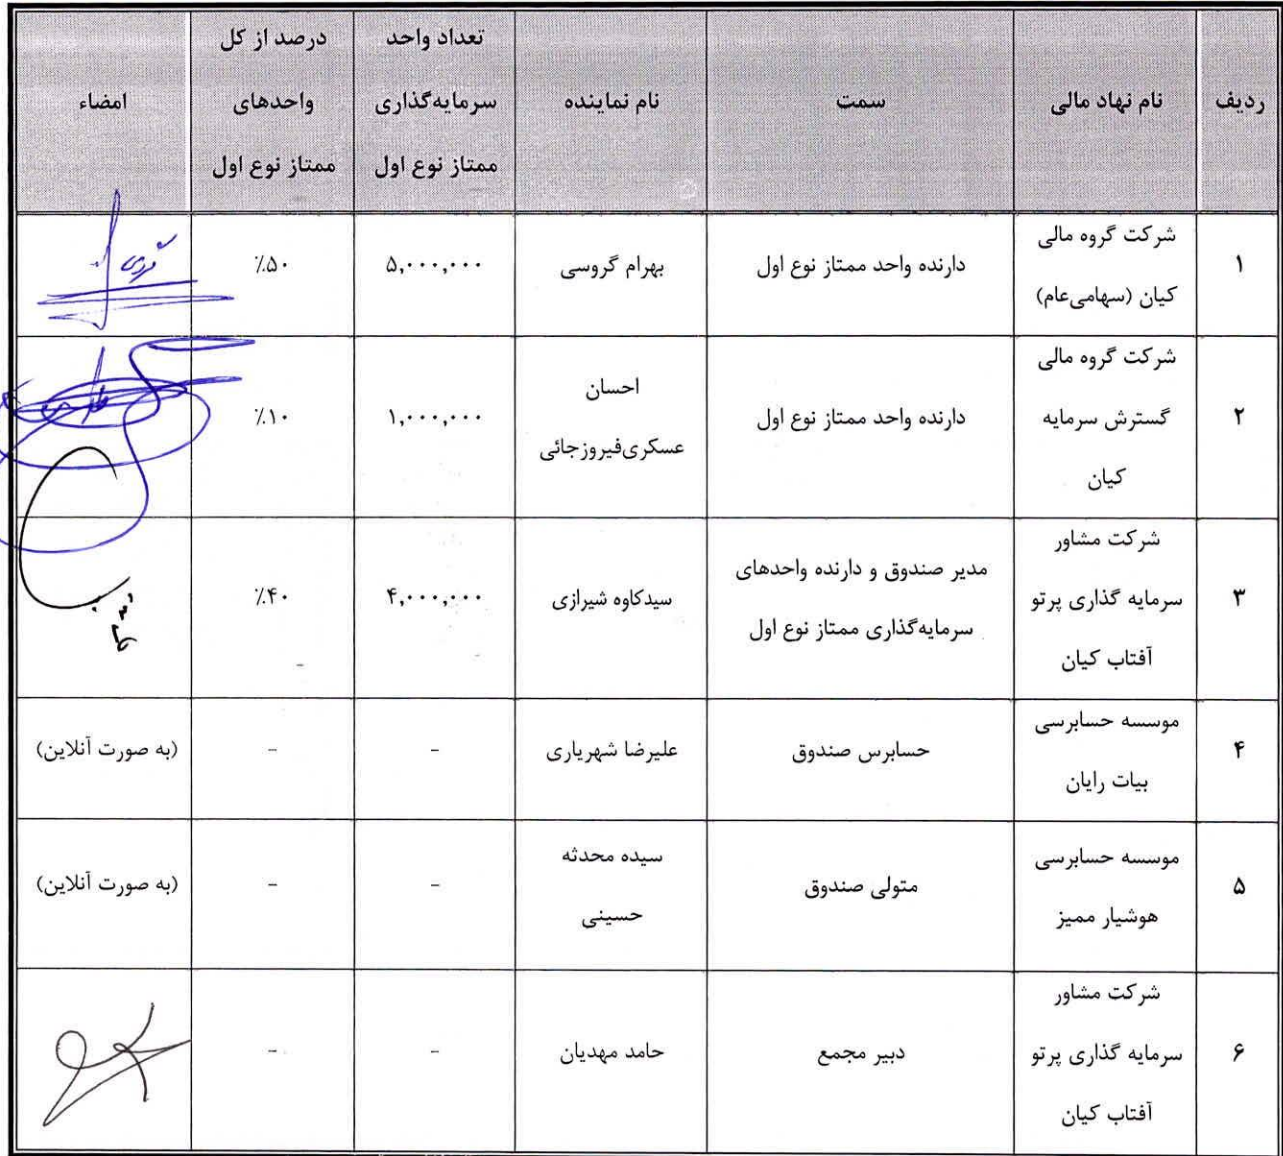 ردیف
نام نهاد مالی
سمت
نام نماینده
تعداد واحد
سرمایه‌گذاری
ممتاز نوع اول
درصد از کل
واحدهای
ممتاز نوع اول
امضاء
۱
شرکت گروه مالی
کیان (سهامی‌عام)
دارنده واحد ممتاز نوع اول
بهرام گروسی
۵,۰۰۰,۰۰۰
٪۵۰
۲
شرکت گروه مالی
گسترش سرمایه
کیان
دارنده واحد ممتاز نوع اول
احسان
عسکری‌فیروزجائی
۱,۰۰۰,۰۰۰
٪۱۰
۳
شرکت مشاور
سرمایه گذاری پرتو
آفتاب کیان
مدیر صندوق و دارنده واحدهای
سرمایه‌گذاری ممتاز نوع اول
سیدکاوه شیرازی
۴,۰۰۰,۰۰۰
٪۴۰
۴
موسسه حسابرسی
بیات رایان
حسابرس صندوق
علیرضا شهریاری
-
-
(به صورت آنلاین)
۵
موسسه حسابرسی
هوشیار ممیز
متولی صندوق
سیده محدثه
حسینی
-
-
(به صورت آنلاین)
۶
شرکت مشاور
سرمایه گذاری پرتو
آفتاب کیان
دبیر مجمع
حامد مهدیان
-
-